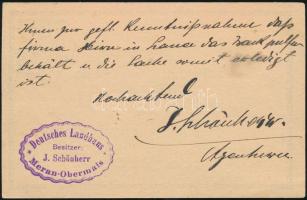 Ihnen zur gefl. Kenntnißnahme, daß
Firma in Lana das
behält u die Sache somit erledigt
ist.
Hochachtend
J. Schönherr
* Deutsches Landhaus *
Besitzer:
J. Schönherr
Meran-Obermais